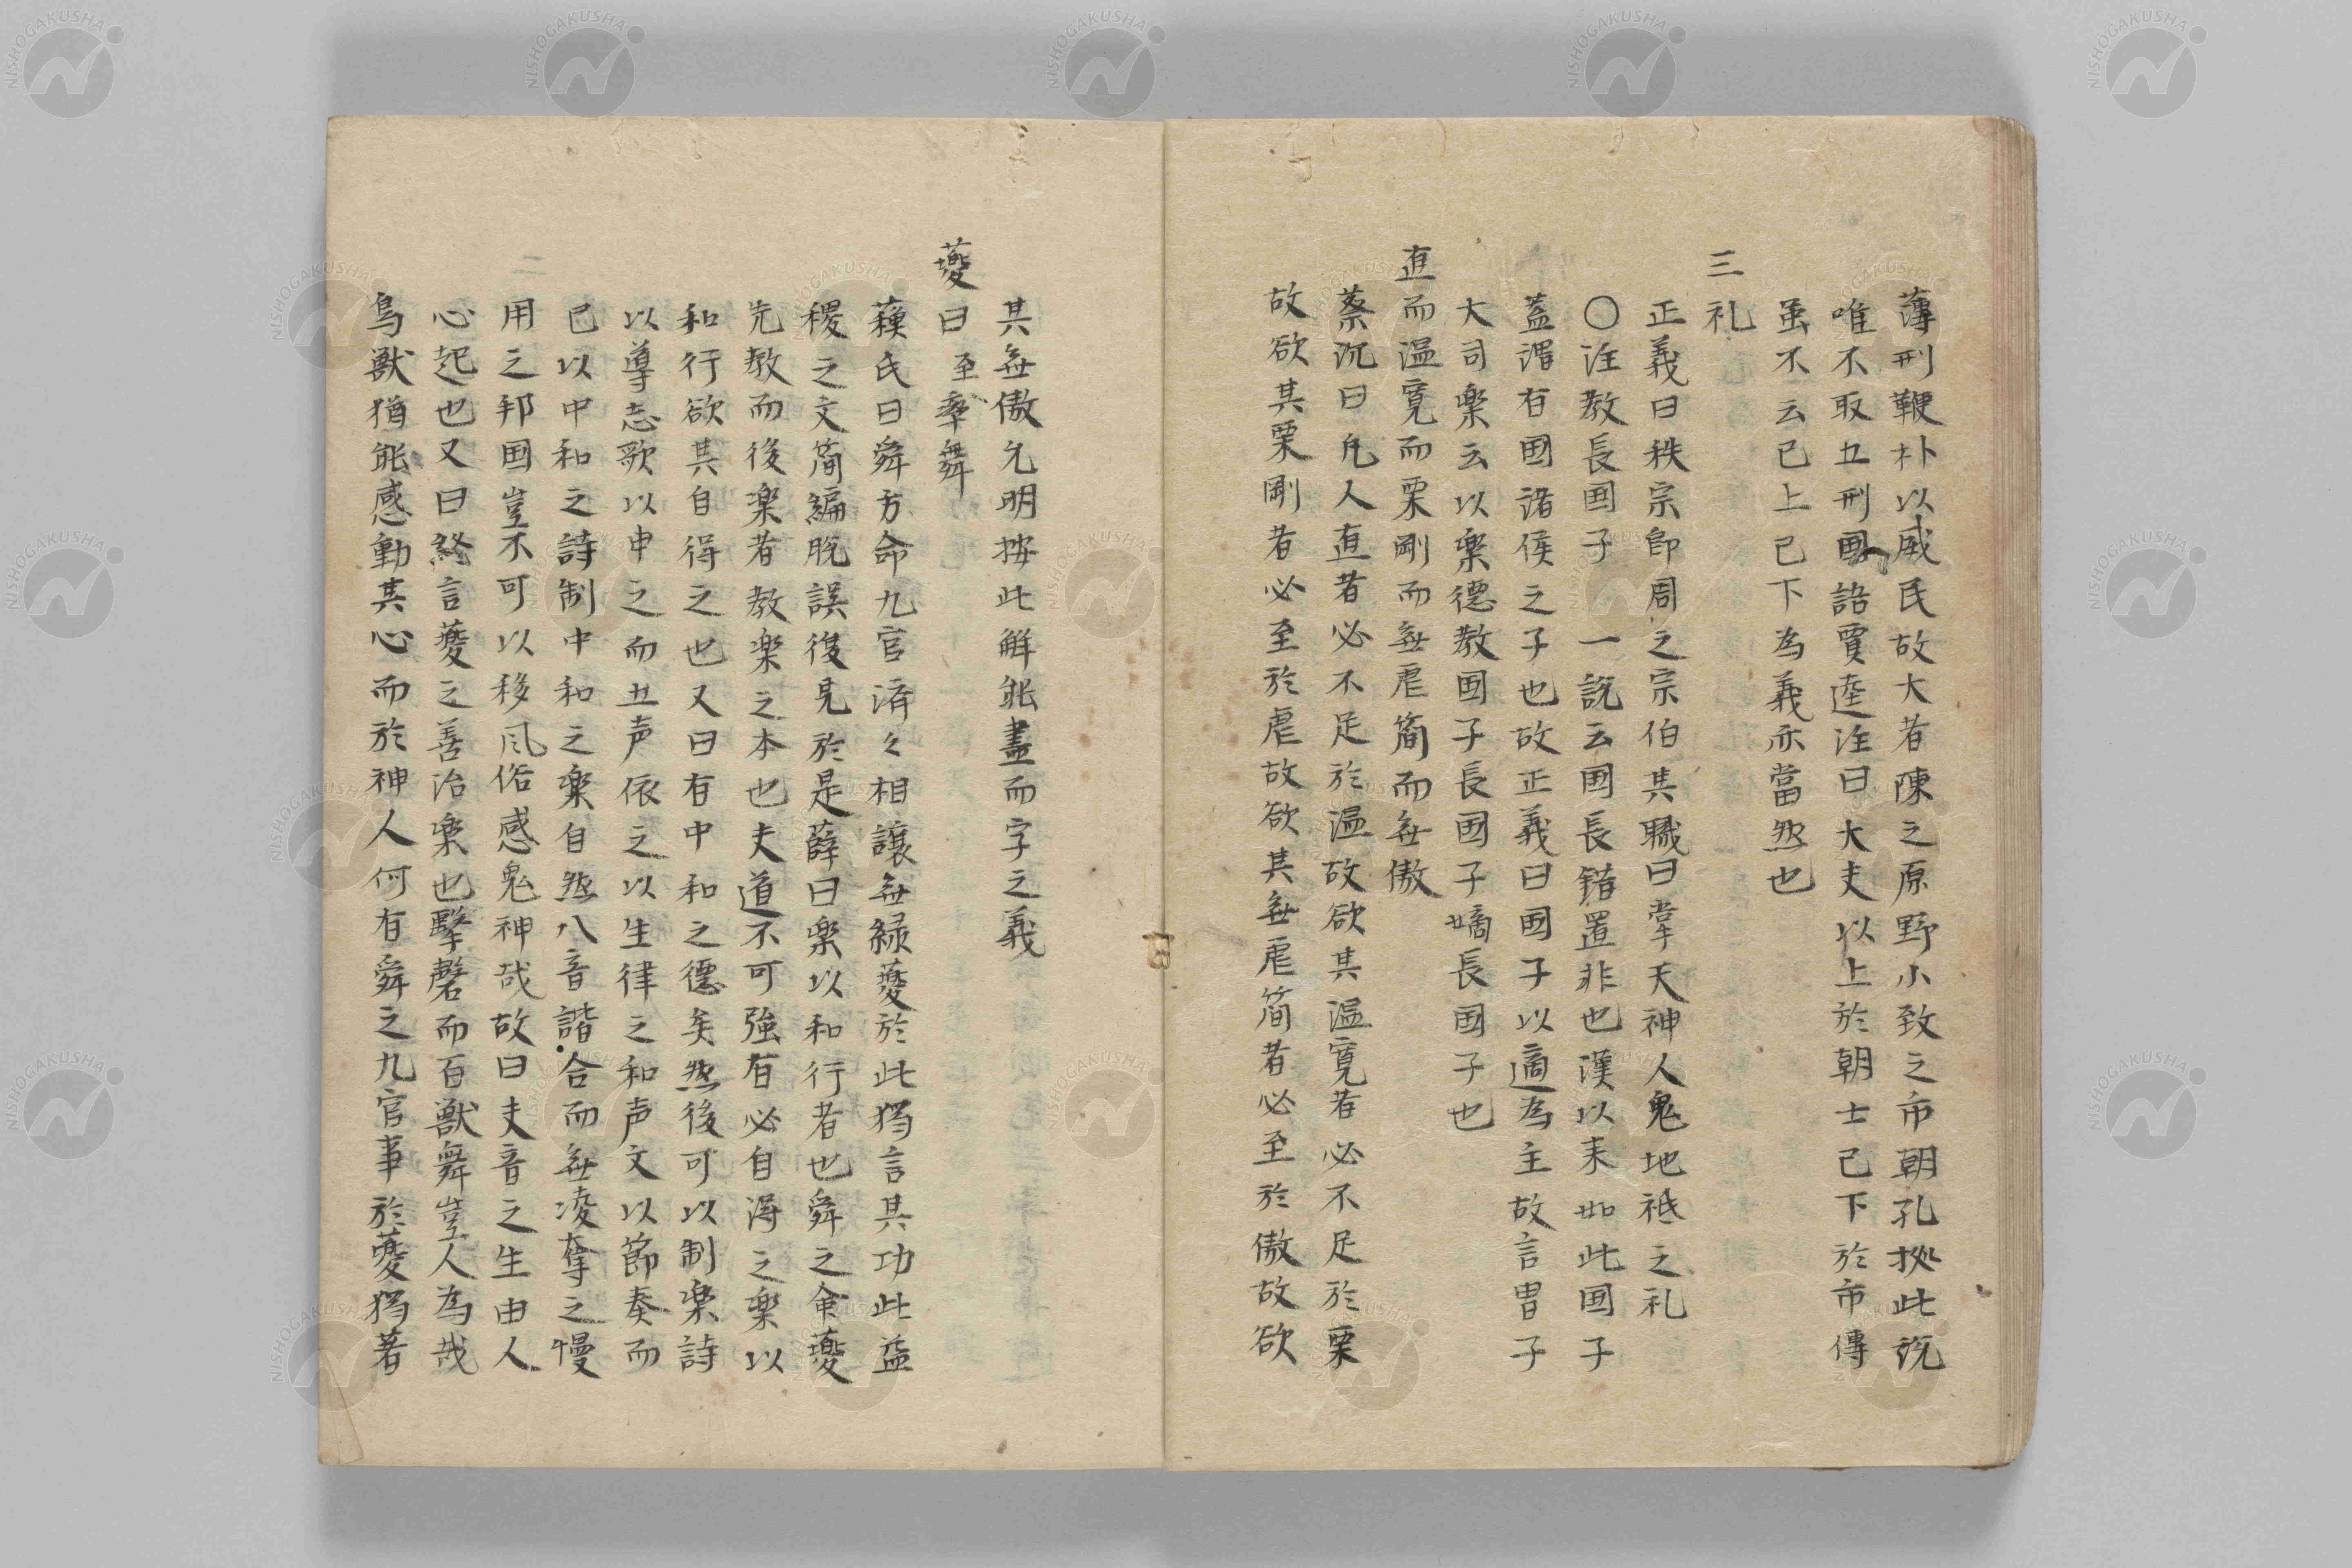 薄刑鞭朴以威民故大者陳之原野小致之市朝孔拠此説
唯不取五刑國語賈逵注曰大夫以上於朝士已下於市傳
虽不云已上已下為義亦當然也
三礼
正義曰秩宗即周之宗伯其職曰掌天神人鬼地祇之礼
〇注教長国子 一説云国長錯置非也漢以来如此国子
蓋謂有國諸侯之子也故正義曰國子以適為主故言冑子
大司楽云以楽德教国子長国子嫡長國子也
直而温寛而栗剛而無虐簡而無傲
蔡沉曰凡人直者必不足於温故欲其温寛者必不足於栗
故欲其栗剛者必至於虐故欲其無虐簡者必至於傲故欲
其無傲允明按此解能盡而字之義
夔曰至率舞
蘓氏曰舜方命九官済々相讓無縁夔於此獨言其功此益
稷之文簡編脱誤復見於是薛曰楽以和行者也舜之命夔
先教而後楽者教楽之本也夫道不可強有必自得之楽以
和行欲其自得之也又曰有中和之德矣然後可以制楽詩
以導志歌以申之而五声依之以生律之和声文以節奏而
已以中和之詩制中和之楽自然八音諧合而無凌奪之慢
用之邦国豈不可以移風俗感鬼神哉故曰夫音之生由人
心起也又曰終言夔之善治楽也擊磬而百獣舞豈人為哉
鳥獣猶能感動其心而於神人何有舜之九官事於夔獨著
NISHOGAKUSHA